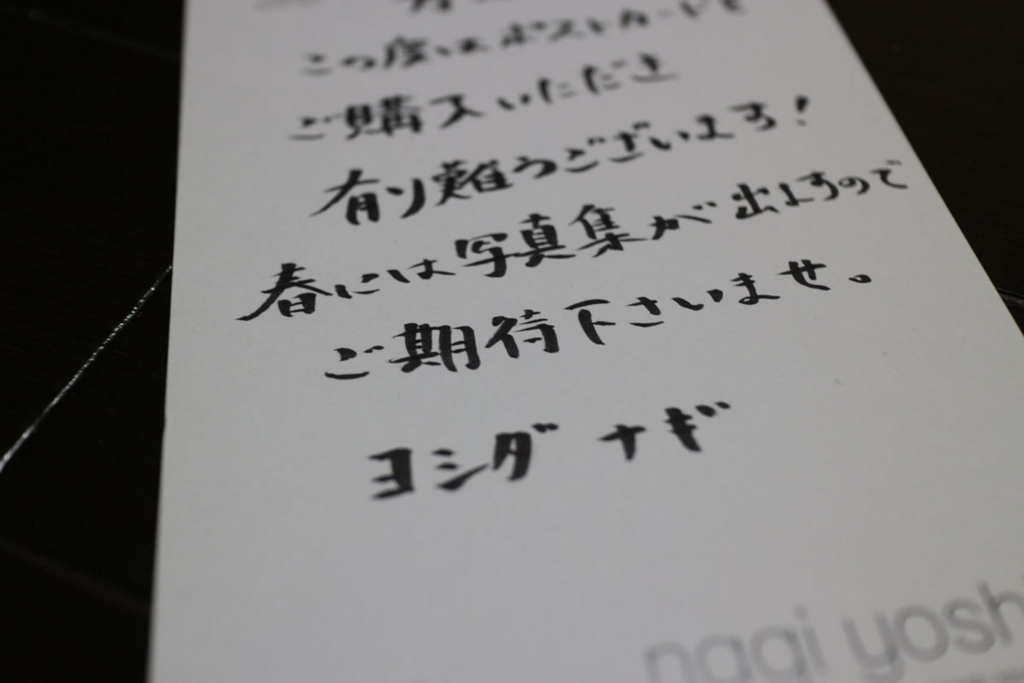 この度はポストカードを
ご購入いただき
有り難うございます!
春には写真集が出ますので
ご期待下さいませ。
ヨシダナギ
nagi yosh